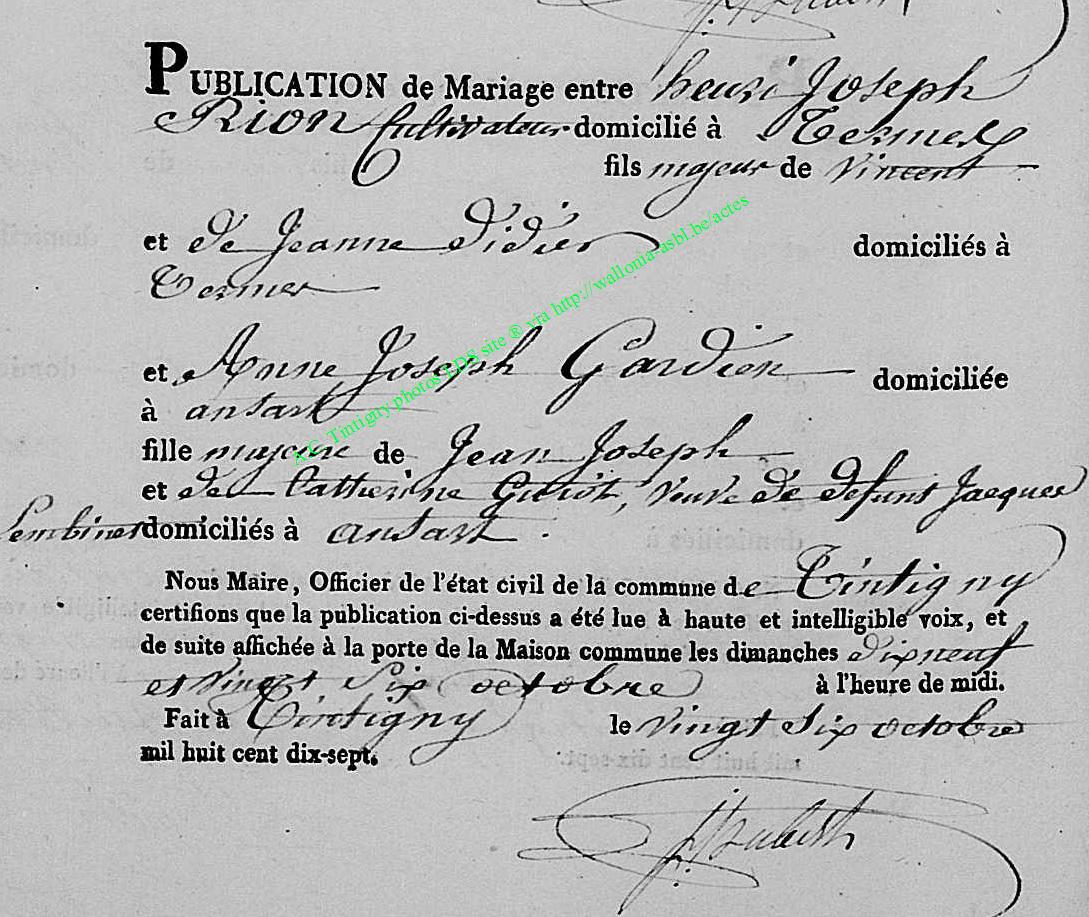 PUBLICATION de Mariage entre henri Joseph
Rion Cultivateur domicilié à Termes
fils majeur de Vincent
et de Jeanne Didier domiciliés à
Termes
et Anne Joseph Gardien domiciliée
à ansart
fille majeure de Jean Joseph
et de Catherine Guiot, veuve de defunt Jacques
domiciliés à ansart.
Nous Maire, Officier de l'état civil de la commune de Tintigny
certifions que la publication ci-dessus a été lue à haute et intelligible voix, et
de suite affichée à la porte de la Maison commune les dimanches dixneuf
et Vingt Six octobre à l'heure de midi.
Fait à Tintigny le Vingt Six octobre
mil huit cent dix-sept.
A.C. Tintigny photos EDS site ® via http://wallonia-asbl.be/actes